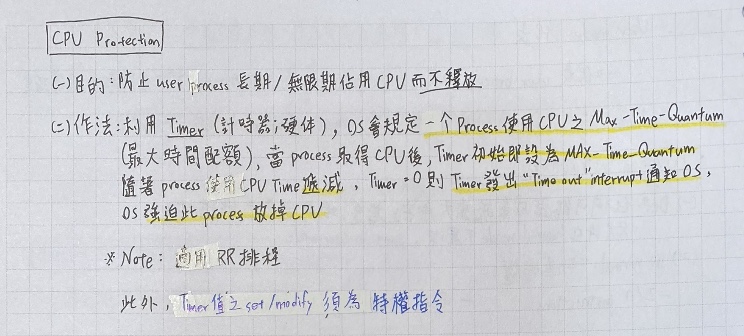 CPU Protection
(一)目的:防止 user process 長期/無限期佔用 CPU 而不釋放
(二)作法:利用 Timer (計時器;硬体), OS會規定一个Process使用CPU之 Max-Time-Quantum
(最大時間配額), 當 process 取得CPU後, Timer初始即設為MAX-Time-Quantum
隨著 process 使用 CPU Time遞減, Timer=0則Timer發出"Time out"interrupt通知OS,
OS強迫此process 放掉CPU
※Note: 適用 RR排程
此外, Timer值之 set/modify 須為 特權指令